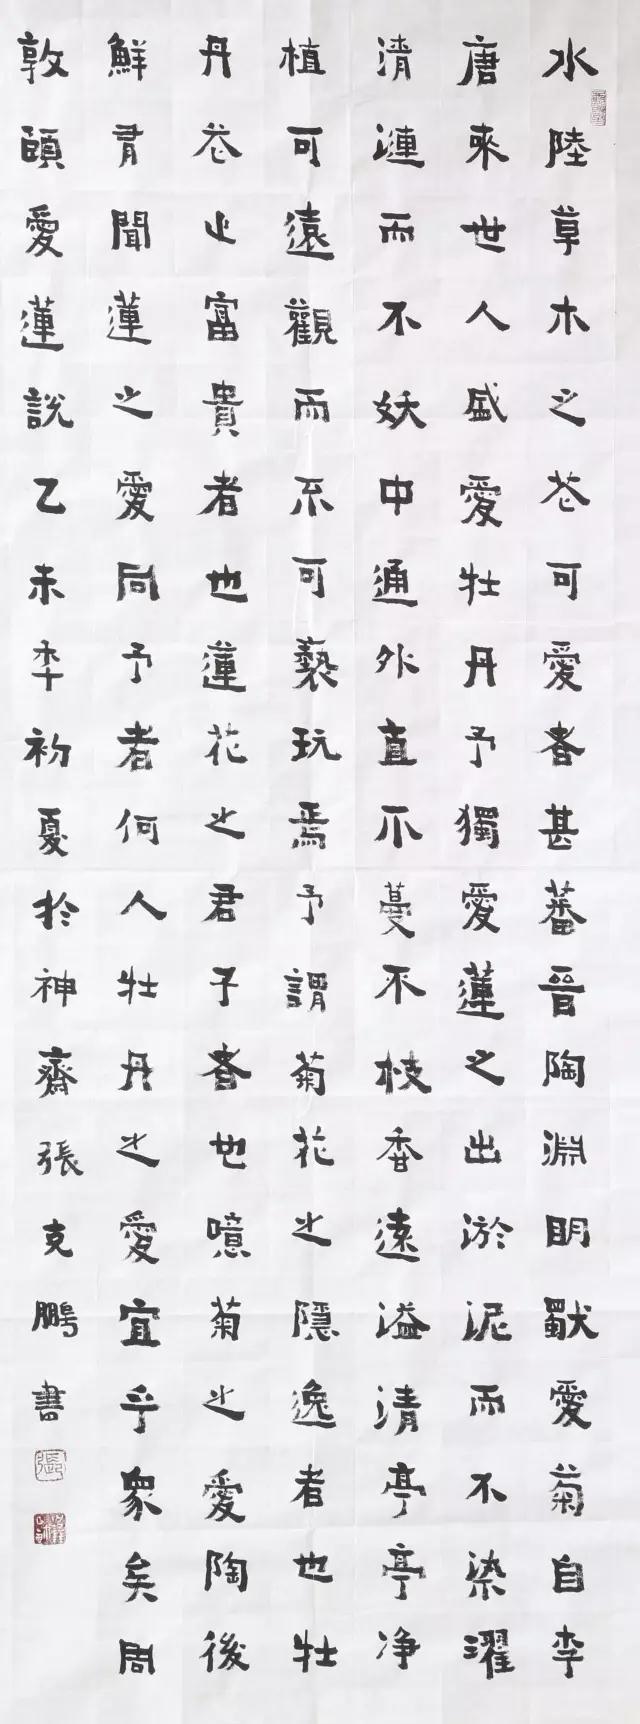 水陸草木之花可愛者甚蕃晉陶淵明獨愛菊自李
唐來世人盛愛牡丹予獨愛蓮之出淤泥而不染濯
清漣而不妖中通外直不蔓不枝香遠溢清亭亭净
植可遠觀而不可褻玩焉予謂菊花之隱逸者也牡
丹花之富貴者也蓮花之君子者也噫菊之愛陶後
鮮有聞蓮之愛同予者何人牡丹之愛宜乎眾矣周
敦頤愛蓮說乙未年初夏於神齋張克鵬書